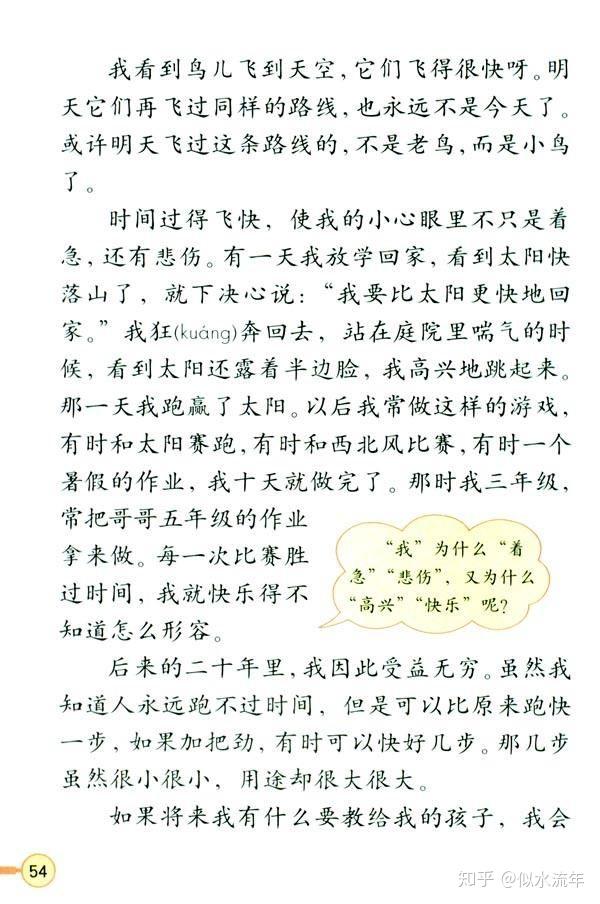 我看到鸟儿飞到天空，它们飞得很快呀。明
天它们再飞过同样的路线，也永远不是今天了。
或许明天飞过这条路线的，不是老鸟，而是小鸟
了。
时间过得飞快，使我的小心眼里不只是着
急，还有悲伤。有一天我放学回家，看到太阳快
落山了，就下决心说：“我要比太阳更快地回
家。”我狂(kuáng)奔回去，站在庭院里喘气的时
候，看到太阳还露着半边脸，我高兴地跳起来。
那一天我跑赢了太阳。以后我常做这样的游戏，
有时和太阳赛跑，有时和西北风比赛，有时一个
暑假的作业，我十天就做完了。那时我三年级，
常把哥哥五年级的作业
拿来做。每一次比赛胜
过时间，我就快乐得不
知道怎么形容。
“我”为什么“着
急”“悲伤”，又为什么
“高兴”“快乐”呢？
后来的二十年里，我因此受益无穷。虽然我
知道人永远跑不过时间，但是可以比原来跑快
一步，如果加把劲，有时可以快好几步。那几步
虽然很小很小，用途却很大很大。
如果将来我有什么要教给我的孩子，我会
54
知乎 @似水流年